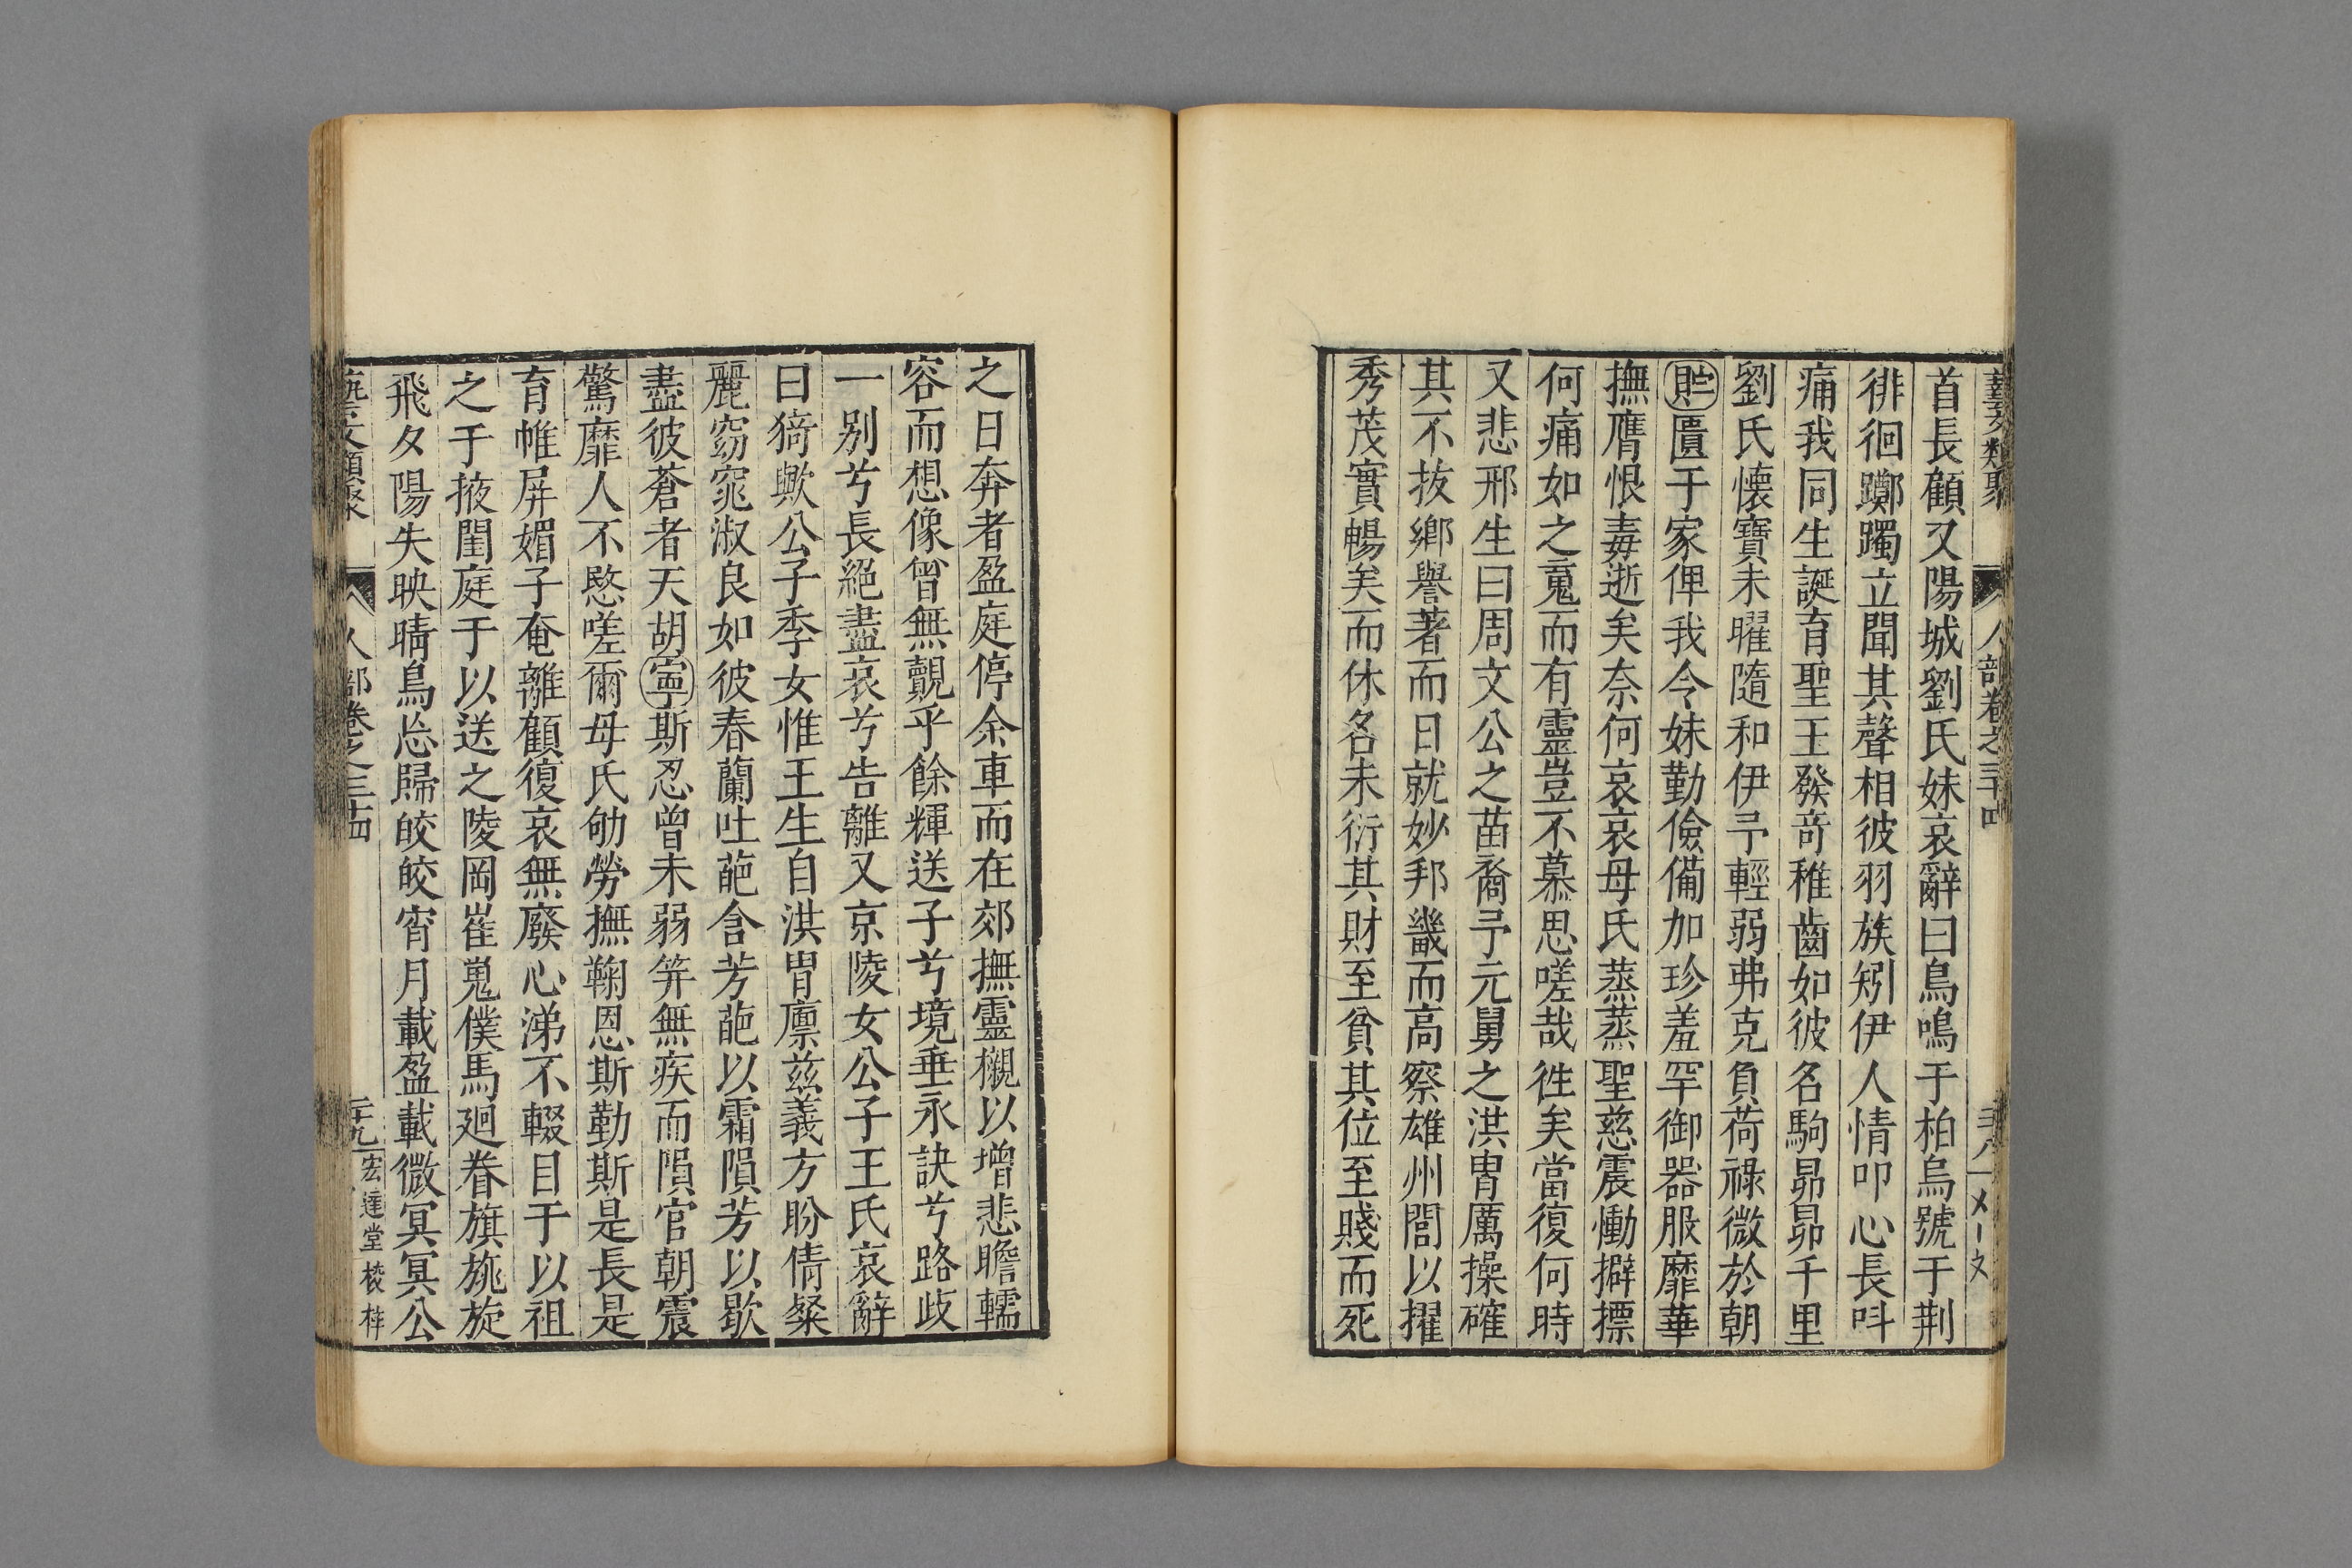 藝文類聚 人部卷之三十四
首長顧又陽城劉氏妹哀辭曰鳥鳴于柏烏號于荆
徘徊躑躅立聞其聲相彼羽族矧伊人情叩心長呌
痛我同生誕育聖王發竒稚齒如彼名駒昂昂千里
劉氏懐寶未曜隨和伊予輕弱弗克負荷禄微於朝
貯匱于家俾我令妹勤儉備加珍羞罕御器服靡華
撫膺恨毒逝矣奈何哀哀母氏蒸蒸聖慈震慟擗摽
何痛如之䰟而有靈豈不慕思嗟哉徃矣當復何時
又悲邢生曰周文公之苗裔予元舅之洪胄厲操確
其不抜鄉譽著而日就妙邦畿而高察雄州閭以擢
秀茂實暢矣而休名未衍其財至貧其位至賤而死
之日奔者盈庭停余車而在郊撫靈櫬以增悲瞻轜
容而想像曾無覿乎餘輝送子兮境垂永訣兮路歧
一别兮長絕盡哀兮告離又京陵女公子王氏哀辭
曰猗歟公子季女惟王生自洪胄廪兹義方盼倩粲
麗窈窕淑良如彼春蘭吐葩含芳葩以霜隕芳以歇
盡彼蒼者天胡寧斯忍曾未弱笄無疾而隕官朝震
驚靡人不愍嗟爾母氏劬勞撫鞠恩斯勤斯是長是
育帷屏媚子奄離顧復哀無廢心涕不輟目于以祖
之于掖闈庭于以送之陵岡崔嵬僕馬廻眷旗旐旋
飛夕陽失映晴鳥忩歸皎皎宵月載盈載微冥冥公
藝文類聚 人部卷之三十四 二十九 宏達堂校梓